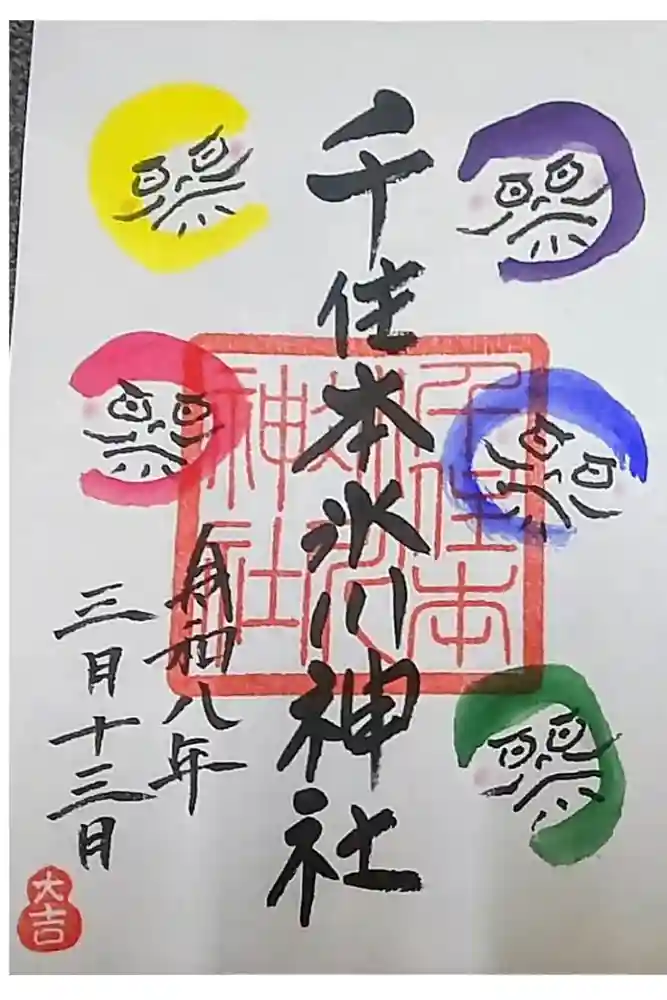 千住本氷川神社
千住本
氷川
神社
令和八年
三月十三日
大吉